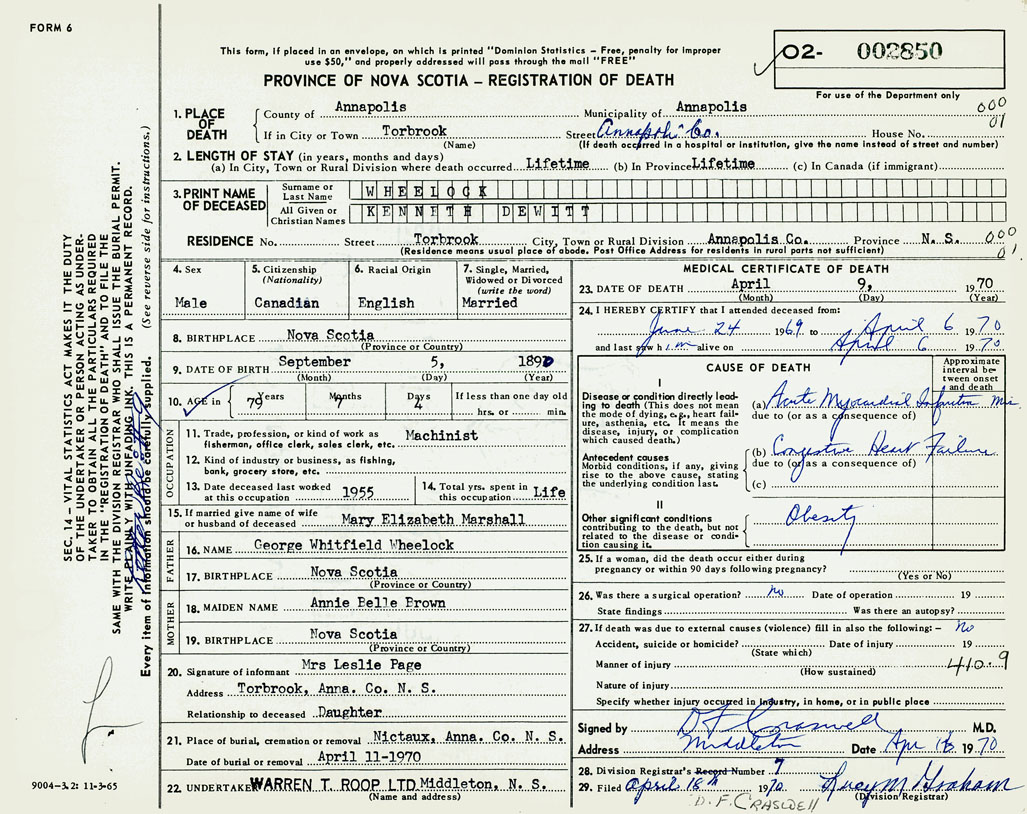 FORM 6
This form, if placed in an envelope, on which is printed "Dominion Statistics – Free, penalty for improper
use $50," and properly addressed will pass through the mail "FREE"
O2- 002850
PROVINCE OF NOVA SCOTIA – REGISTRATION OF DEATH
For use of the Department only
1. PLACE OF DEATH
County of Annapolis Municipality of Annapolis 000
If in City or Town Torbrook Street Annapolis Co. House No. 01
(Name) (If death occurred in a hospital or institution, give the name instead of street and number)
2. LENGTH OF STAY (in years, months and days)
(a) In City, Town or Rural Division where death occurred Lifetime (b) In Province Lifetime (c) In Canada (if immigrant)
3. PRINT NAME OF DECEASED
Surname or Last Name WHEELOCK
All Given or Christian Names KENNETH DEWITT
RESIDENCE No. Street Torbrook City, Town or Rural Division Annapolis Co. Province N. S. 000
(Residence means usual place of abode. Post Office Address for residents in rural parts not sufficient) 01
4. Sex
Male
5. Citizenship
(Nationality)
Canadian
6. Racial Origin
English
7. Single, Married,
Widowed or Divorced
(write the word)
Married
8. BIRTHPLACE Nova Scotia
(Province or Country)
9. DATE OF BIRTH September 5, 1890
(Month) (Day) (Year)
10. AGE in 79 Years 7 Months 4 Days If less than one day old
hrs. or min.
OCCUPATION
11. Trade, profession, or kind of work as Machinist
fisherman, office clerk, sales clerk, etc.
12. Kind of industry or business, as fishing,
bank, grocery store, etc.
13. Date deceased last worked
at this occupation 1955
14. Total yrs. spent in
this occupation Life
15. If married give name of wife
or husband of deceased Mary Elizabeth Marshall
FATHER
16. NAME George Whitfield Wheelock
17. BIRTHPLACE Nova Scotia
(Province or Country)
MOTHER
18. MAIDEN NAME Annie Belle Brown
19. BIRTHPLACE Nova Scotia
(Province or Country)
20. Signature of informant Mrs Leslie Page
Address Torbrook, Anna. Co. N. S.
Relationship to deceased Daughter
21. Place of burial, cremation or removal Nictaux, Anna. Co. N. S.
Date of burial or removal April 11-1970
22. UNDERTAKER WARREN T. ROOP LTD Middleton, N. S.
(Name and address)
MEDICAL CERTIFICATE OF DEATH
23. DATE OF DEATH April 9, 1970
(Month) (Day) (Year)
24. I HEREBY CERTIFY that I attended deceased from:
June 24 1969 to April 6 1970
and last saw him alive on April 6 1970
CAUSE OF DEATH
Approximate
interval be-
tween onset
and death
I
Disease or condition directly lead-
ing to death (This does not
mean the mode of dying, e.g., heart fail-
ure, asthenia, etc. It means the
disease, injury, or complication
which caused death.)
(a) Acute Myocardial Infarction Min
due to (or as a consequence of)
Antecedent causes
Morbid conditions, if any, giving
rise to the above cause, stating
the underlying condition last.
(b) Congestive Heart Failure
due to (or as a consequence of)
(c)
II
Other significant conditions
contributing to the death, but not
related to the disease or condi-
tion causing it.
Obesity
25. If a woman, did the death occur either during
pregnancy or within 90 days following pregnancy?
(Yes or No)
26. Was there a surgical operation? no Date of operation 19
State findings Was there an autopsy?
27. If death was due to external causes (violence) fill in also the following: – No
Accident, suicide or homicide? Date of injury 19
(State which)
Manner of injury 410.9
(How sustained)
Nature of injury
Specify whether injury occurred in industry, in home, or in public place
Signed by D F Craswell M.D.
Address Middleton Date Apr 1970
28. Division Registrar's Record Number 7
29. Filed April 1970 Lucy M Graham
(Division Registrar)
D. F. CRASWELL
SEC. 14 – VITAL STATISTICS ACT MAKES IT THE DUTY
OF THE UNDERTAKER OR PERSON ACTING AS UNDER-
TAKER TO OBTAIN ALL THE PARTICULARS REQUIRED
IN THE "REGISTRATION OF DEATH" AND TO FILE THE
SAME WITH THE DIVISION REGISTRAR WHO SHALL ISSUE THE BURIAL PERMIT.
WRITE PLAINLY WITH UNFADING INK. THIS IS A PERMANENT RECORD.
Every item of information should be carefully supplied. (See reverse side for instructions.)
9004-3.2: 11-3-65